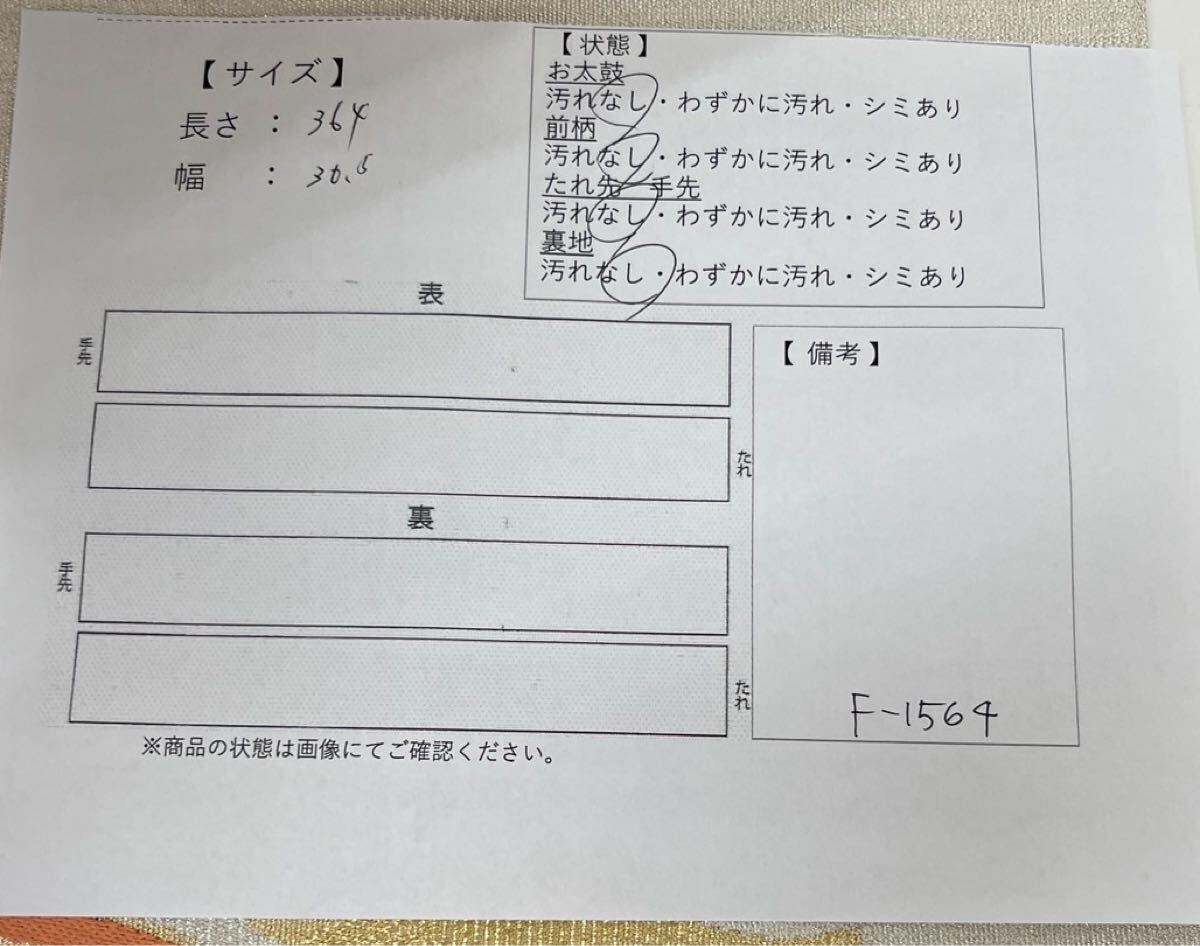 【サイズ】
長さ : 364
幅 : 30.5
【状態】
お太鼓
汚れなし・わずかに汚れ・シミあり
前柄
汚れなし・わずかに汚れ・シミあり
たれ先 手先
汚れなし・わずかに汚れ・シミあり
裏地
汚れなし・わずかに汚れ・シミあり
表
手先
たれ
裏
手先
たれ
【備考】
F-1564
※商品の状態は画像にてご確認ください。